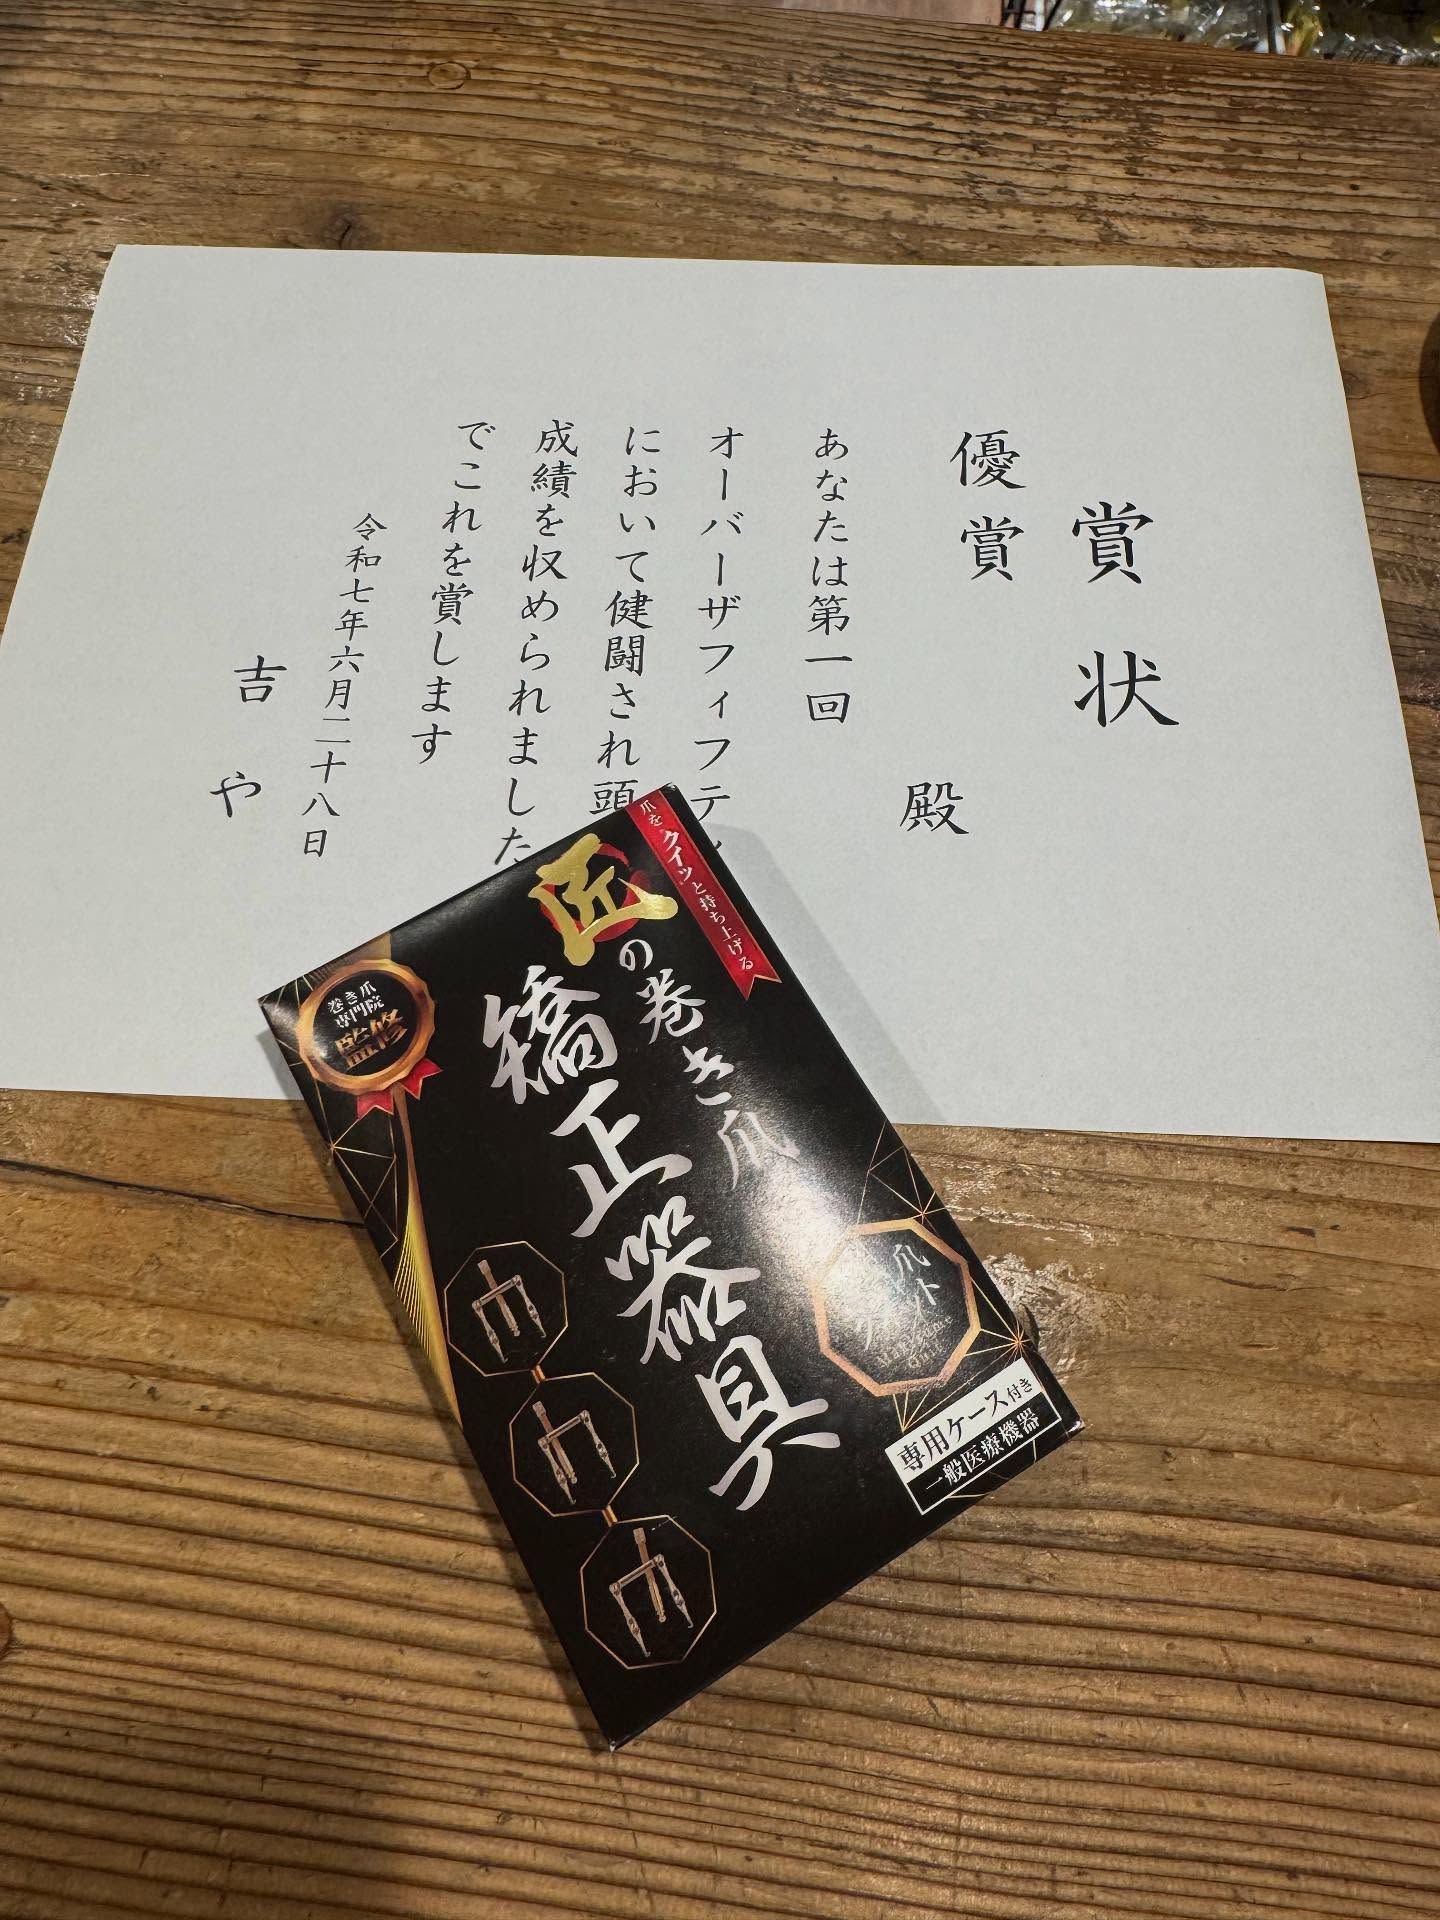 賞状
優賞
殿
あなたは第一回
オーバーザフィフテ
において健闘され頭
成績を収められました
でこれを賞します
令和七年六月二十八日
吉や
爪をクイッと持ち上げる
匠の巻き爪
矯正器具
巻き爪
専門院
監修
専用ケース付き
一般医療機器